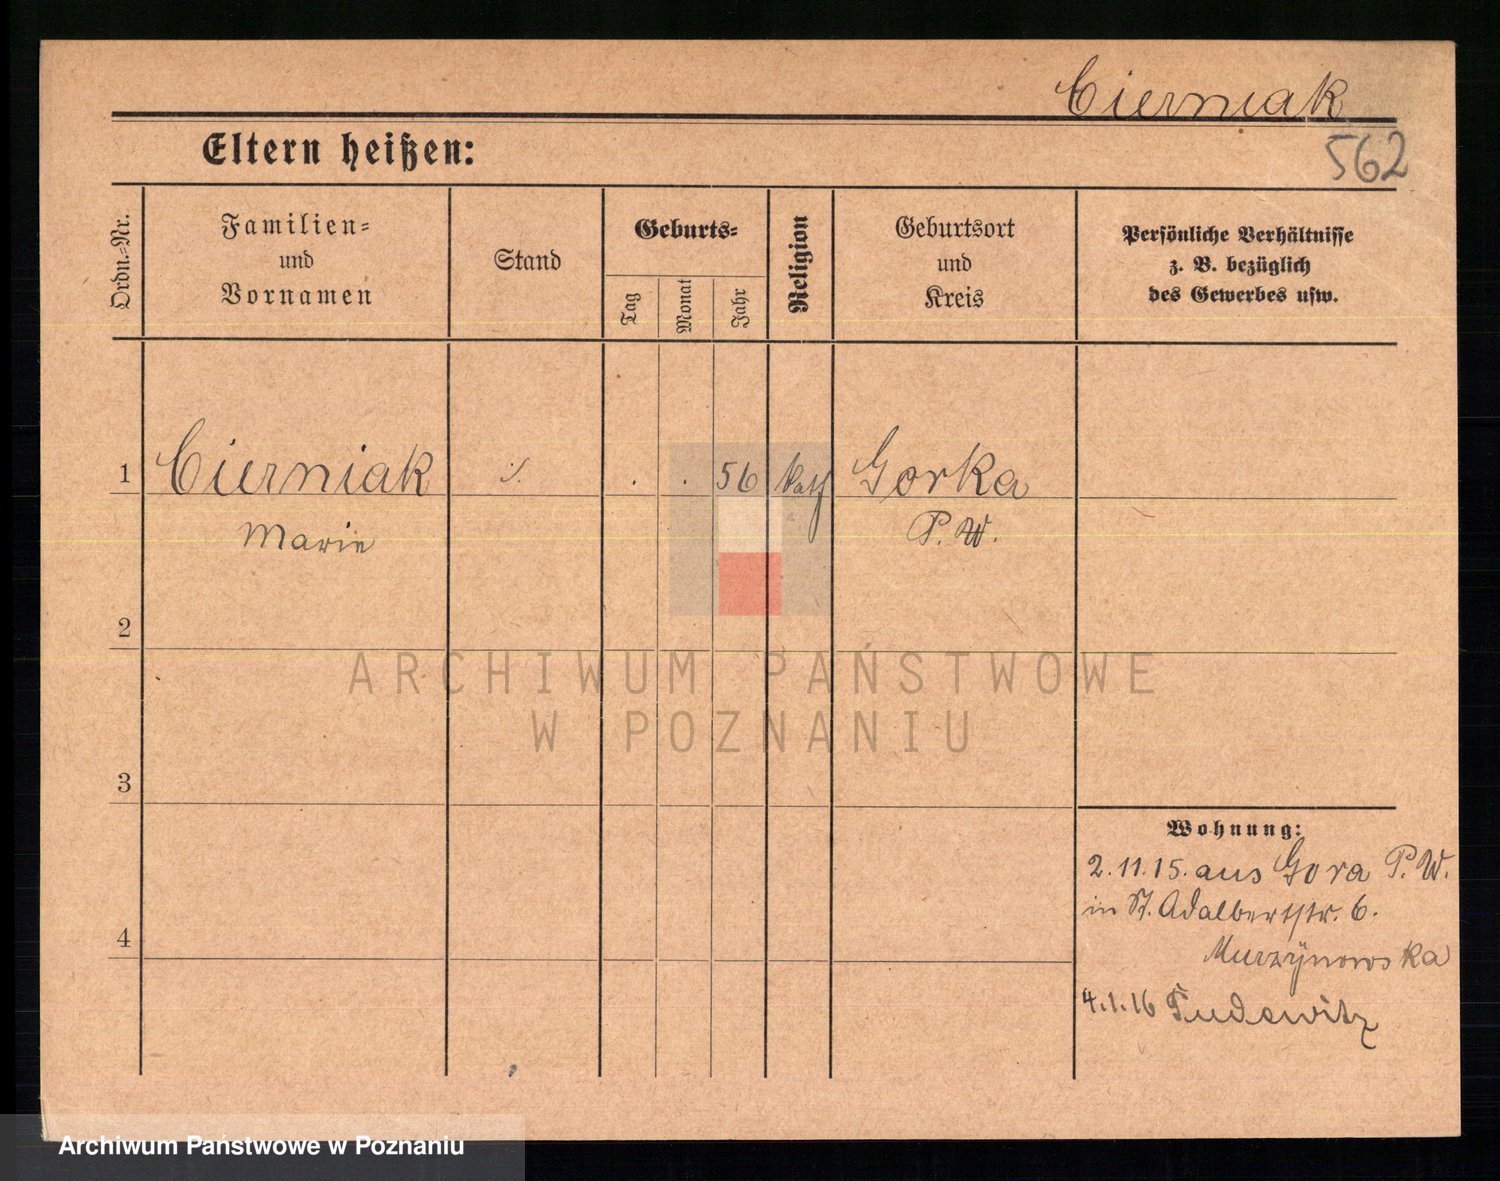 Cierniak
Eltern heißen:
562
Ordn.-Nr.
Familien-
und
Vornamen
Stand
Geburts-
Tag
Monat
Jahr
Religion
Geburtsort
und
Kreis
Persönliche Verhältnisse
z. B. bezüglich
des Gewerbes usw.
1 Cierniak ./. . . 56 kath Gorka
Marie P. W.
2
ARCHIWUM PAŃSTWOWE
W POZNANIU
3
Wohnung:
2.11.15. aus Gora P. W.
in St. Adalbertstr. 6.
4
Murzynowska
4.1.16 Pudewitz
Archiwum Państwowe w Poznaniu